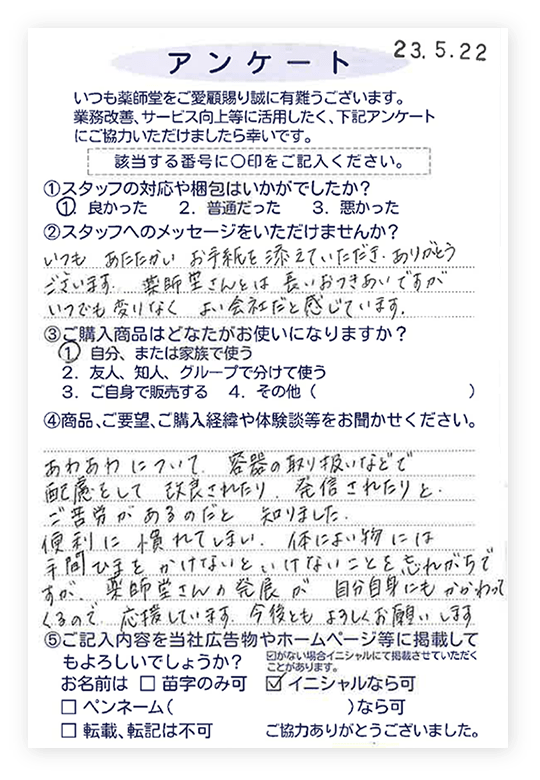 アンケート
23.5.22
いつも薬師堂をご愛顧賜り誠に有難うございます。
業務改善、サービス向上等に活用したく、下記アンケート
にご協力いただけましたら幸いです。
該当する番号に〇印をご記入ください。
①スタッフの対応や梱包はいかがでしたか?
1. 良かった 2. 普通だった 3. 悪かった
②スタッフへのメッセージをいただけませんか?
いつも あたたかい お手紙を添えていただき、ありがとう
ございます。 薬師堂さんとは 長いおつきあいですが
いつでも変りなく よい会社だと感じています。
③ご購入商品はどなたがお使いになりますか?
1 自分、または家族で使う
2. 友人、知人、グループで分けて使う
3. ご自身で販売する 4. その他( )
④商品、ご要望、ご購入経緯や体験談等をお聞かせください。
あわあわについて、 容器の取り扱いなどで
配慮をして 改良されたり、 発信されたりと、
ご苦労が あるのだと 知りました。
便利に 慣れてしまい、 体によい物には
手間ひまを かけないといけないことを忘れがちで
すが、 薬師堂さんの発展が 自分自身にも かかわって
くるので、 応援しています。 今後とも よろしくお願いします
⑤ご記入内容を当社広告物やホームページ等に掲載して
もよろしいでしょうか?
☑がない場合イニシャルにて掲載させていただく
ことがあります。
お名前は □ 苗字のみ可 ☑ イニシャルなら可
□ ペンネーム( )なら可
□ 転載、転記は不可 ご協力ありがとうございました。